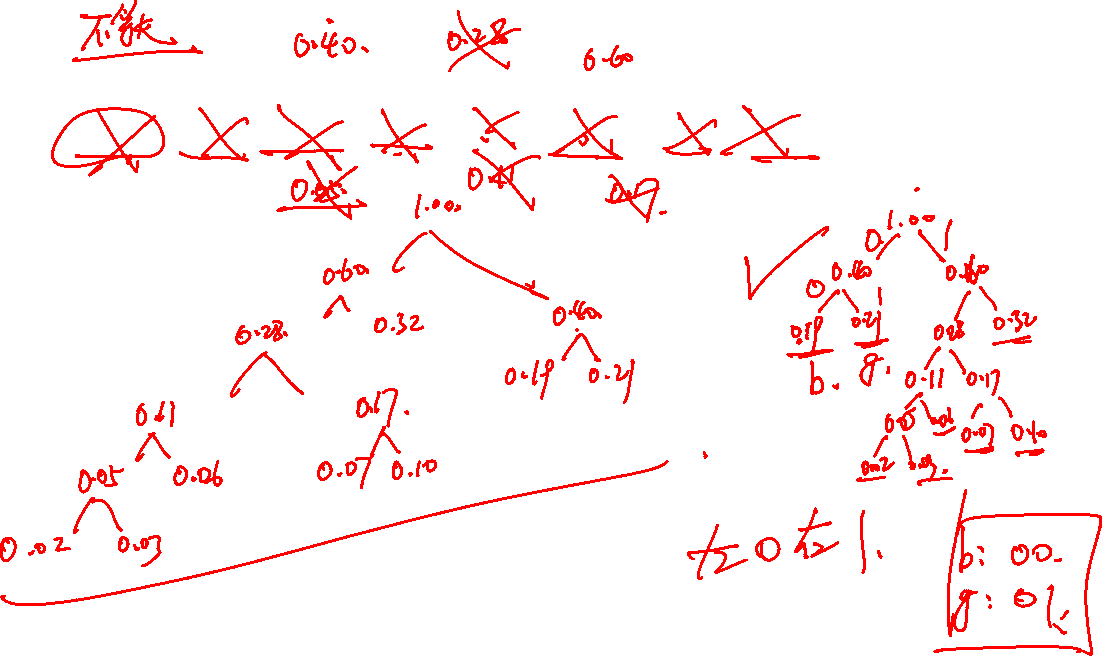 不等长
0.40. 0.28 0.60
0.05 0.41 0.19.
1.00.
0.60
0.28. 0.32 0.40.
0.19 0.21
0.11 0.17.
0.05 0.06 0.07 0.10
0.02 0.03
1.00
0 1
0.40 0.60
0 1
0.19 0.21 0.28 0.32
b. g. 0.11 0.17
0.05 .06 0.07 0.10
0.02 .03.
左0右1.
b: 00.
g: 01